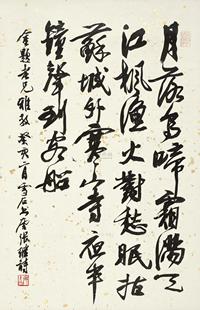 月落烏啼霜滿天
江楓漁火對愁眠姑
蘇城外寒山寺夜半
鐘聲到客船
老兄雅教 癸亥 月雪石書唐張繼詩